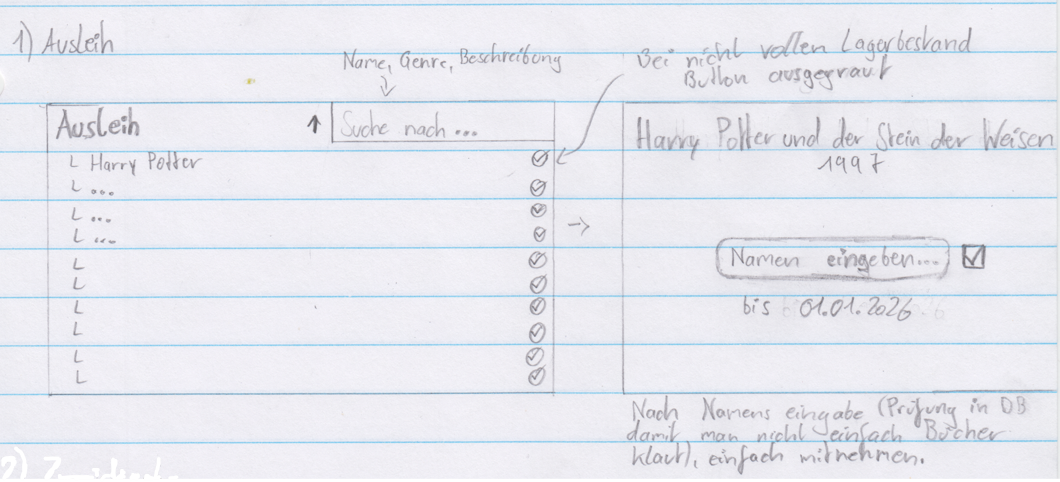 1) Ausleih
Name, Genre, Beschreibung
Bei nicht vollen Lagerbestand
Button ausgegraut
Ausleih ↑ Suche nach ...
L Harry Potter
L ...
L ...
L ...
L
L
L
L
L
L
Harry Potter und der Stein der Weisen
1997
Namen eingeben...
bis 01.01.2026
Nach Namens eingabe (Prüfung in DB
damit man nicht einfach Bücher
klaut), einfach mitnehmen.
2)